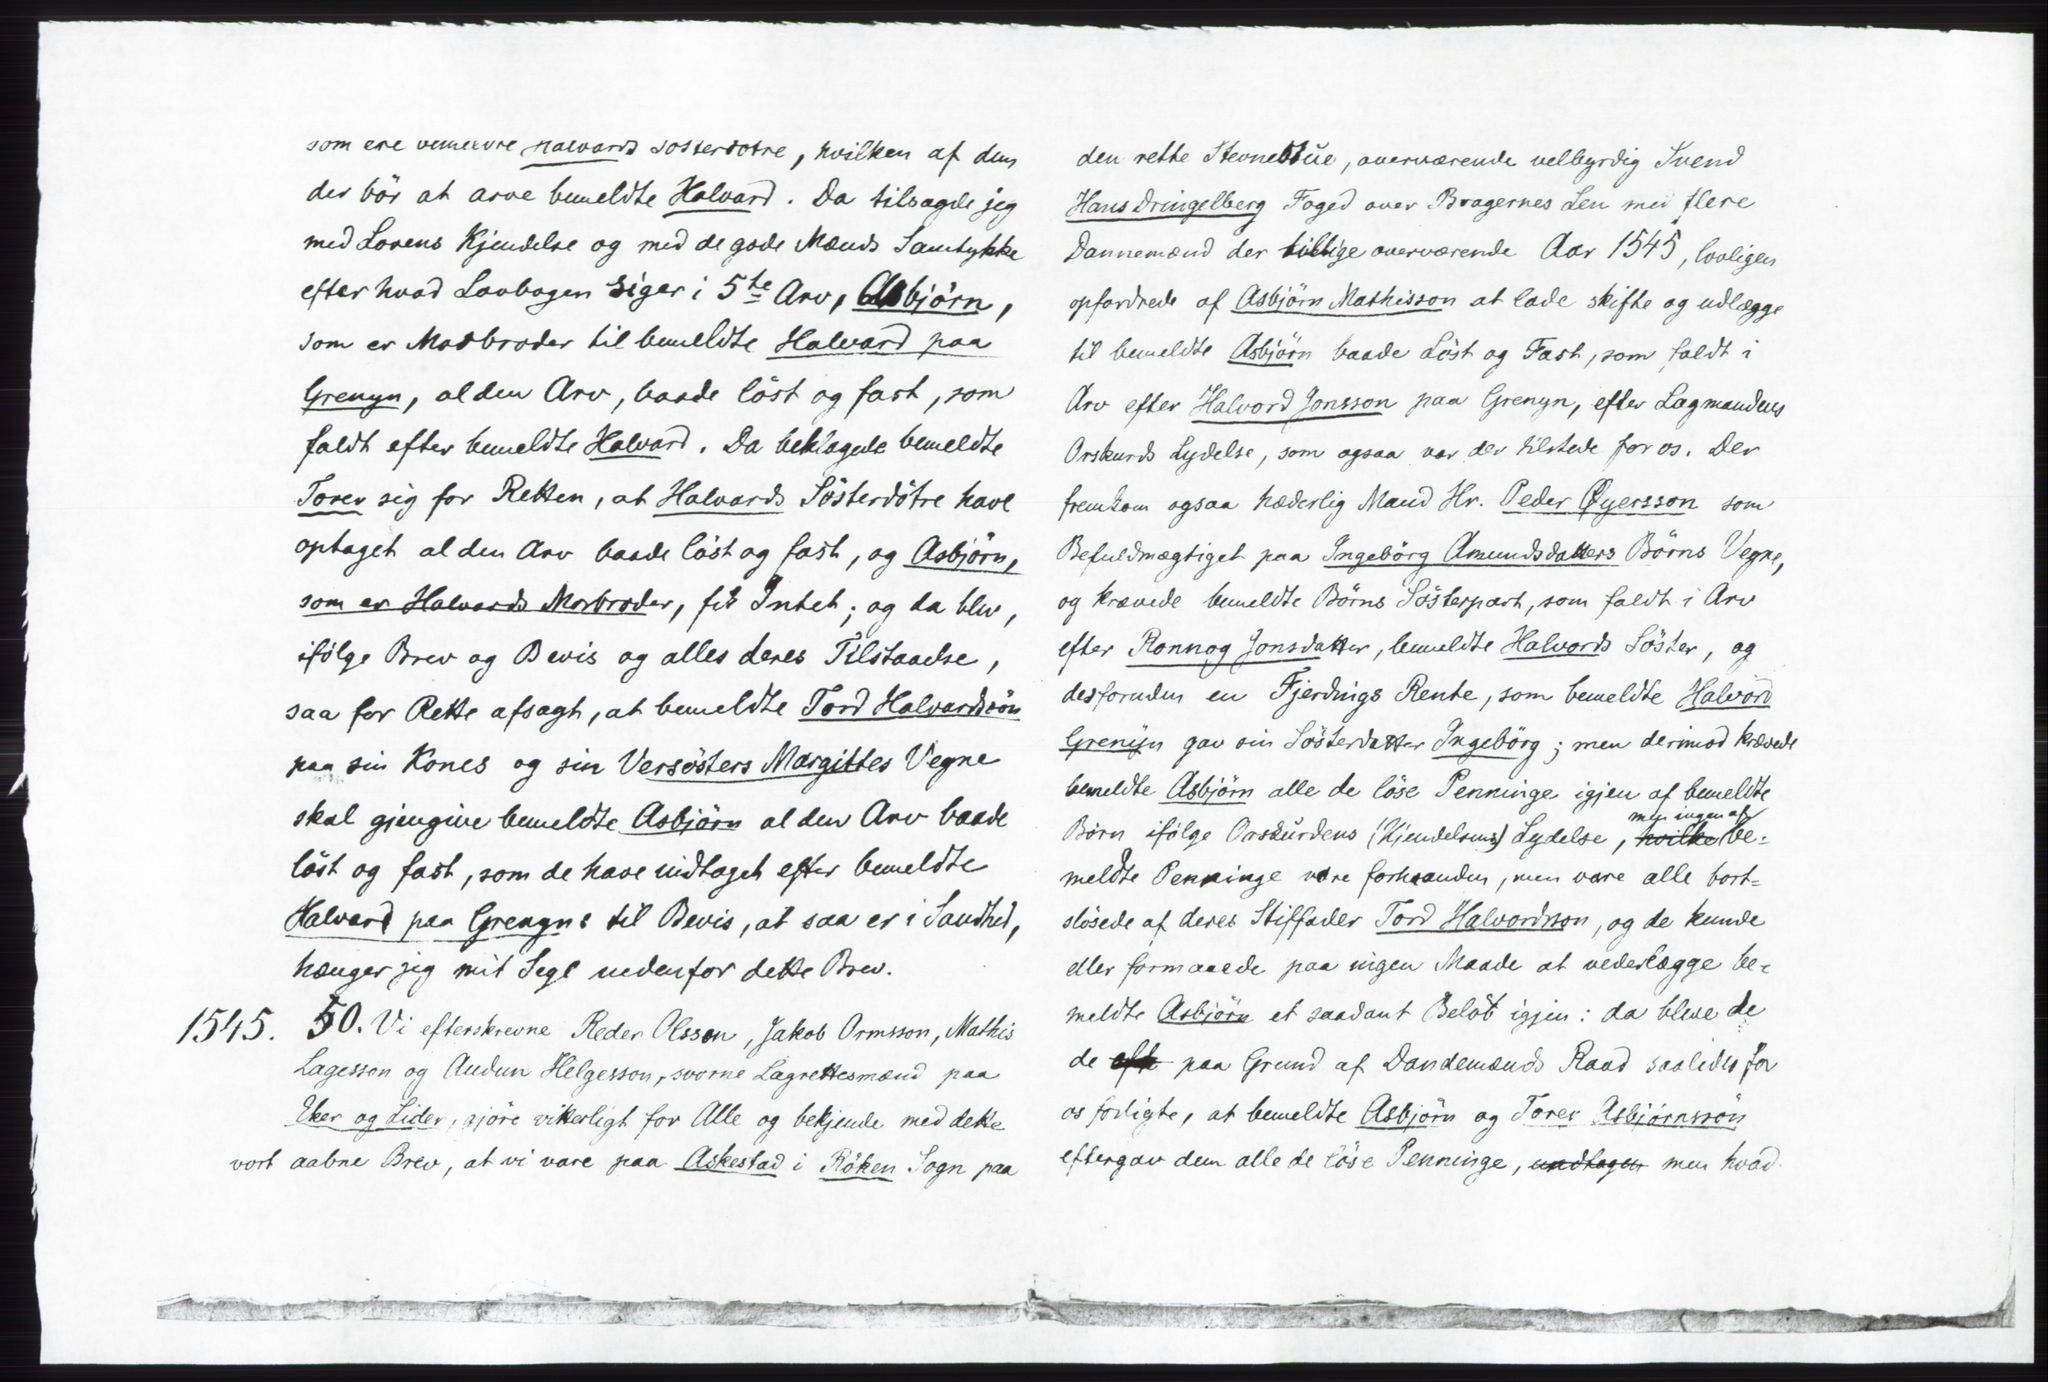 som ere bemeldte Halvards Søsterdøtre, hvilken af dem
der bör at arve bemeldte Halvard. Da tilsagde jeg
med Lovens Kjendelse og med de gode Mænds Samtykke
efter hvad Lovbogen siger i 5te Arv, Asbjörn,
som er Morbroder til bemeldte Halvard paa
Grenyn, al den Arv, baade löst og fast, som
faldt efter bemeldte Halvard. Da beklagede bemeldte
Torer sig for Retten, at Halvards Sösterdötre have
optaget al den Arv baade löst og fast, og Asbjörn,
som er Halvards Morbroder, fik Intet; og da blev,
ifölge Brev og Bevis og alles deres Tilstaaelse,
saa for Rette afsagt, at bemeldte Tord Halvardssön
paa sin Kones og sin Versösters Margittes Vegne
skal gjengive bemeldte Asbjörn al den Arv baade
löst og fast, som de have indtaget efter bemeldte
Halvard paa Grenyns til Bevis, at saa er i Sandhed,
hænger jeg mit Segl nedenfor dette Brev.
1545. 50. Vi efterskrevne Reder Olsson, Jakob Ormsson, Mathis
Lagesson og Audun Helgesson, svorne Lagrettesmænd paa
Eker og Lider, gjöre vitterligt for Alle og bekjende med dette
vort aabne Brev, at vi vare paa Askestad i Röken Sogn paa
den rette Stevnestue, overværende velbyrdig Svend
Hans Dringelberg Foged over Bragernes Len med flere
Dannemænd der tillige overværende Aar 1545, lovligen
opfordrede af Asbjörn Mathisson at lade skifte og udlægge
til bemeldte Asbjörn baade Löst og Fast, som faldt i
Arv efter Halvord Jonsson paa Grenyn, efter Lagmandens
Orskurds Lydelse, som ogsaa var der tilstede for os. Der
fremkom ogsaa hæderlig Mand Hr. Peder Øyersson som
Befuldmægtiget paa Ingebörg Amundsdatters Börns Vegne,
og krævede bemeldte Börns Sösterpart, som faldt i Arv
efter Ronnog Jonsdatter, bemeldte Halvords Söster, og
desforuden en Fjerdings Rente, som bemeldte Halvord
Grenyn gav sin Sösterdatter Ingebörg; men derimod krævede
bemeldte Asbjörn alle de löse Penninge igjen af bemeldte
Börn ifölge Orskurdens (Kjendelsens) Lydelse, hvilke men ingen af be-
meldte Penninge vare forhaanden, men vare alle bort-
slösede af deres Stiffader Tord Halvordsson, og de kunde
eller formaaede paa ingen Maade at vederlægge be-
meldte Asbjörn et saadant Belöb igjen: da bleve de
de eft paa Grund af Dandemænds Raad saaledes for
os forligte, at bemeldte Asbjörn og Torer Asbjörnssön
eftergav dem alle de löse Penninge, undtagen men hvad